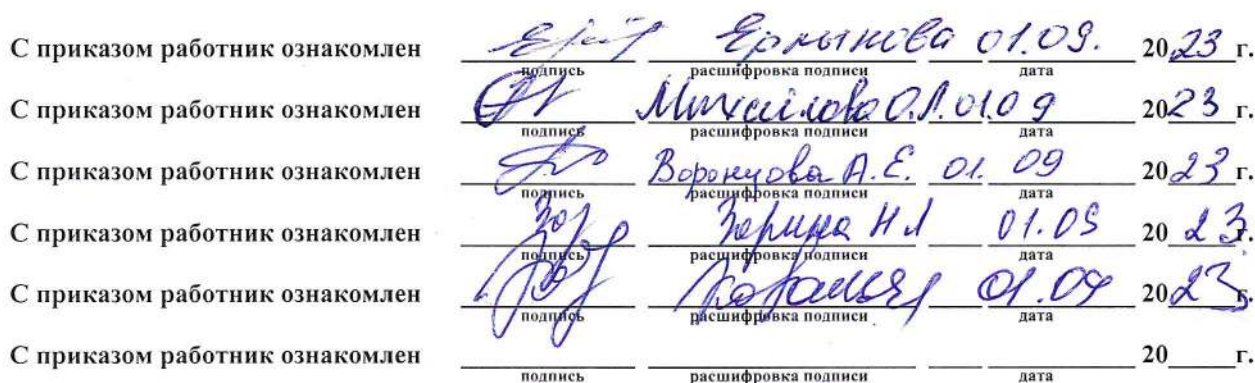 С приказом работник ознакомлен 01.09. 2023 г.
подпись расшифровка подписи дата
С приказом работник ознакомлен Михайлова О.Л. 01.09 2023 г.
подпись расшифровка подписи дата
С приказом работник ознакомлен Воронцова А.Е. 01. 09 2023 г.
подпись расшифровка подписи дата
С приказом работник ознакомлен Зорина Н Л 01.09 2023 г.
подпись расшифровка подписи дата
С приказом работник ознакомлен 01.09 2023 г.
подпись расшифровка подписи дата
С приказом работник ознакомлен 20 г.
подпись расшифровка подписи дата